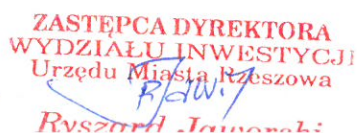 ZASTĘPCA DYREKTORA
WYDZIAŁU INWESTYCJI
Urzędu Miasta Rzeszowa
Ryszard Jaworski